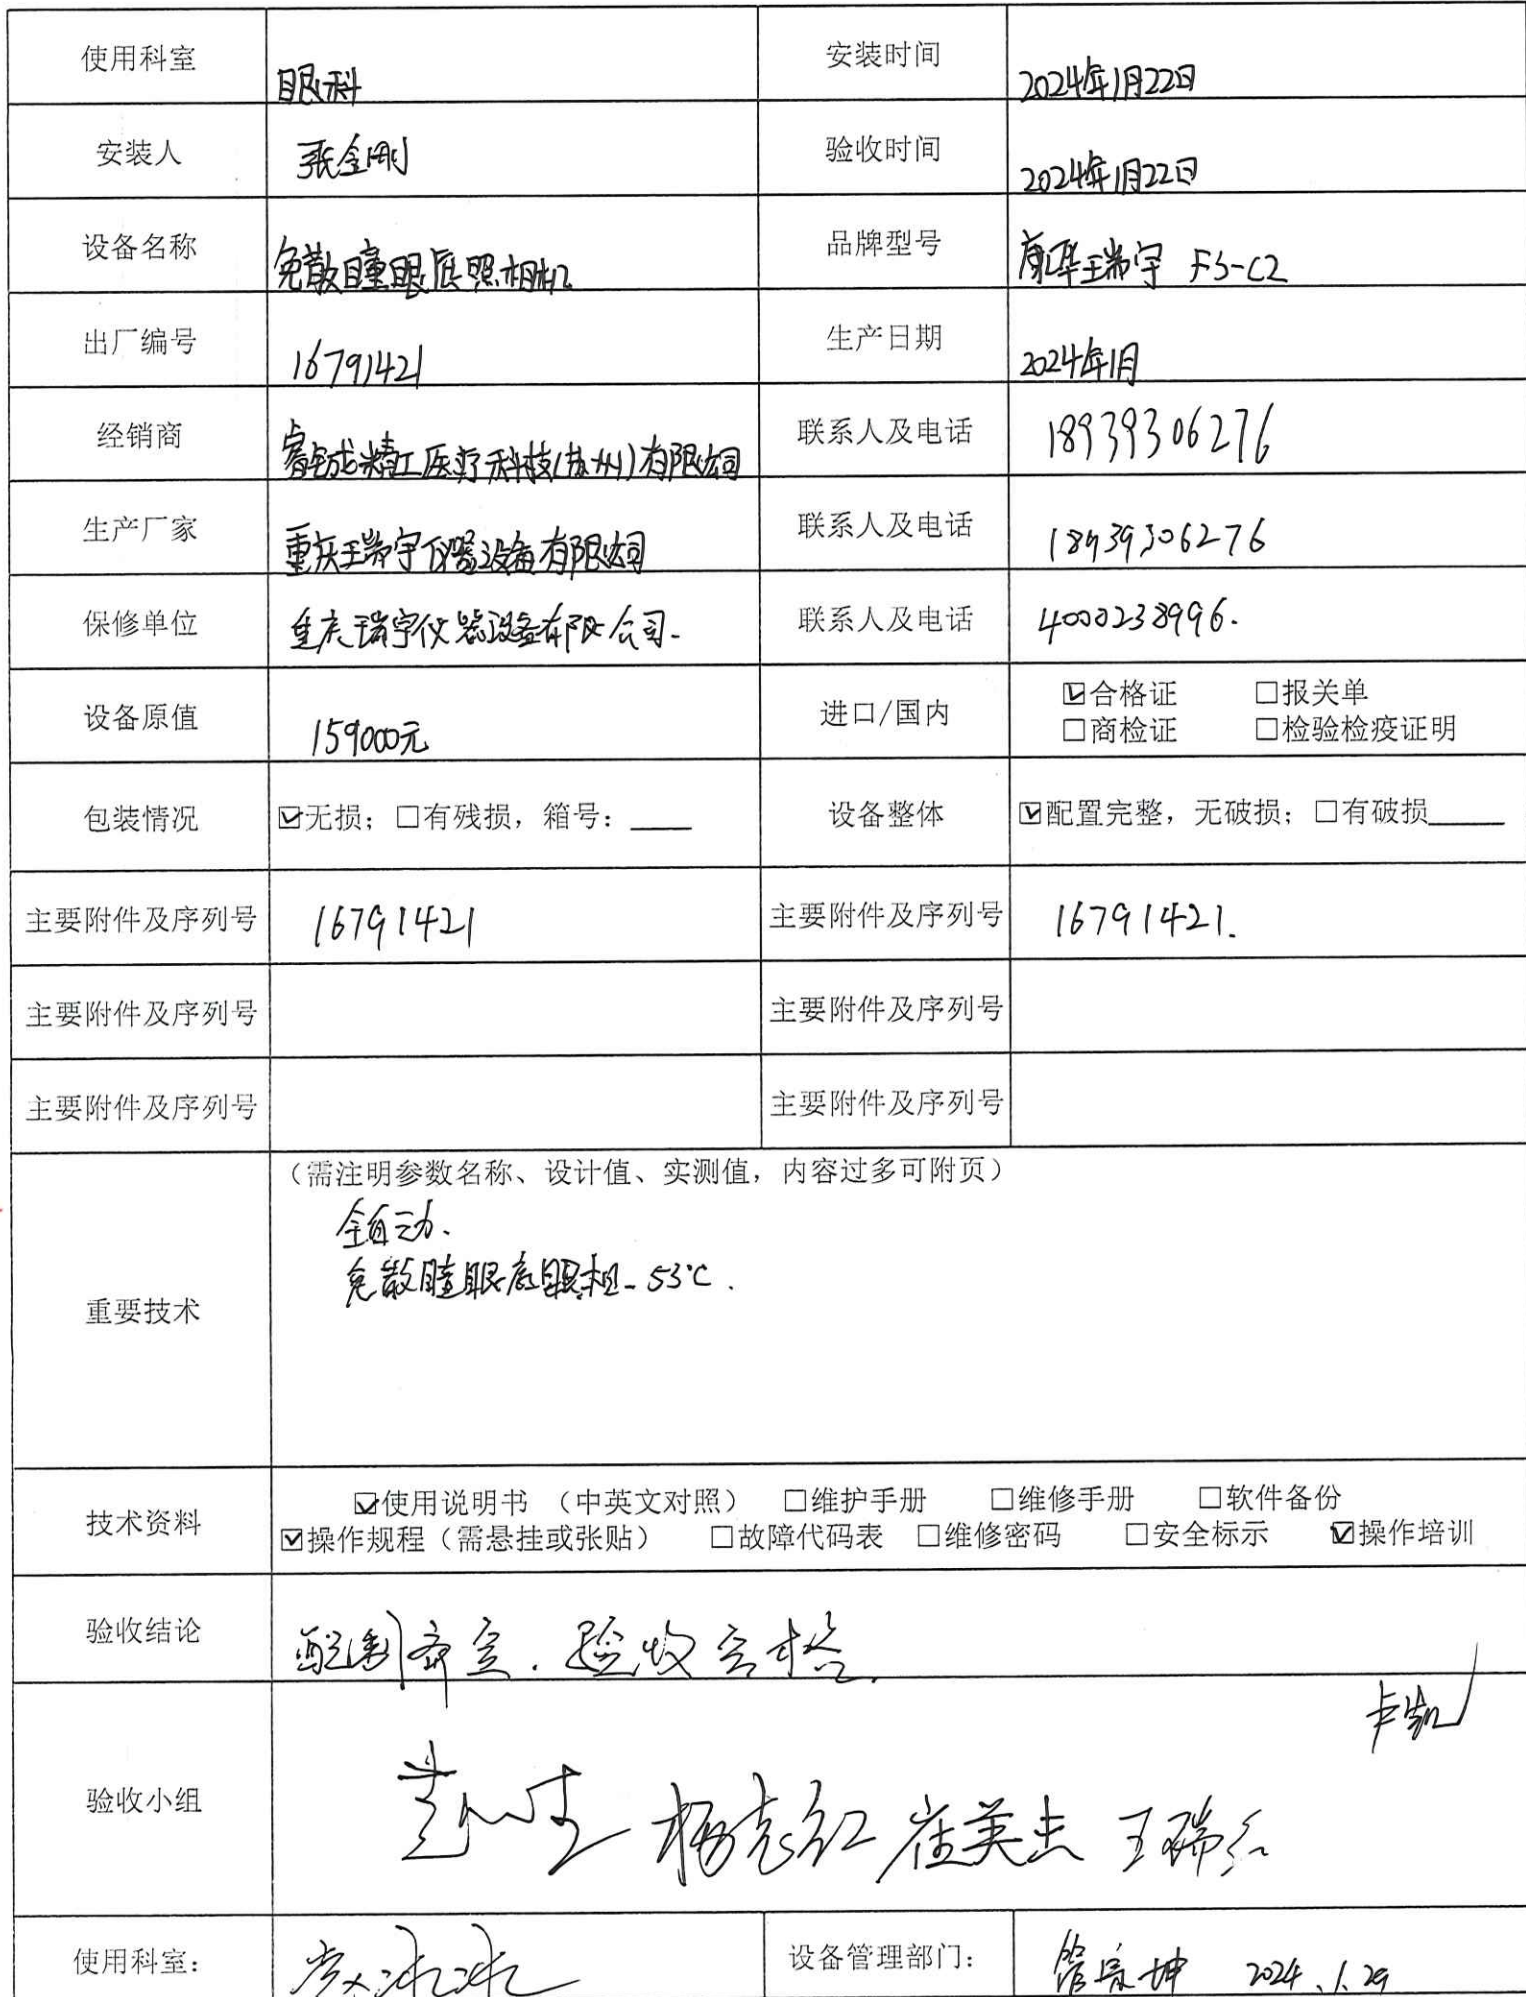 使用科室 眼科 安装时间 2024年1月22日
安装人 张金刚 验收时间 2024年1月22日
设备名称 免散瞳眼底照相机 品牌型号 康华瑞宇 FS-C2
出厂编号 16791421 生产日期 2024年1月
经销商 睿铖精工医疗科技(苏州)有限公司 联系人及电话 18939306276
生产厂家 重庆瑞宇仪器设备有限公司 联系人及电话 18939306276
保修单位 重庆瑞宇仪器设备有限公司. 联系人及电话 4000238996.
设备原值 159000元 进口/国内 ☑合格证 □报关单
□商检证 □检验检疫证明
包装情况 ☑无损；□有残损，箱号：____ 设备整体 ☑配置完整，无破损；□有破损_____
主要附件及序列号 16791421 主要附件及序列号 16791421.
主要附件及序列号 主要附件及序列号
主要附件及序列号 主要附件及序列号
（需注明参数名称、设计值、实测值，内容过多可附页）
全自动.
免散瞳眼底眼相- 53℃.
重要技术
技术资料 ☑使用说明书 （中英文对照） □维护手册 □维修手册 □软件备份
☑操作规程（需悬挂或张贴） □故障代码表 □维修密码 □安全标示 ☑操作培训
验收结论 齐全. 验收合格.
卢凯
验收小组 崔英杰 王瑞红
使用科室： 设备管理部门： 2024.1.29